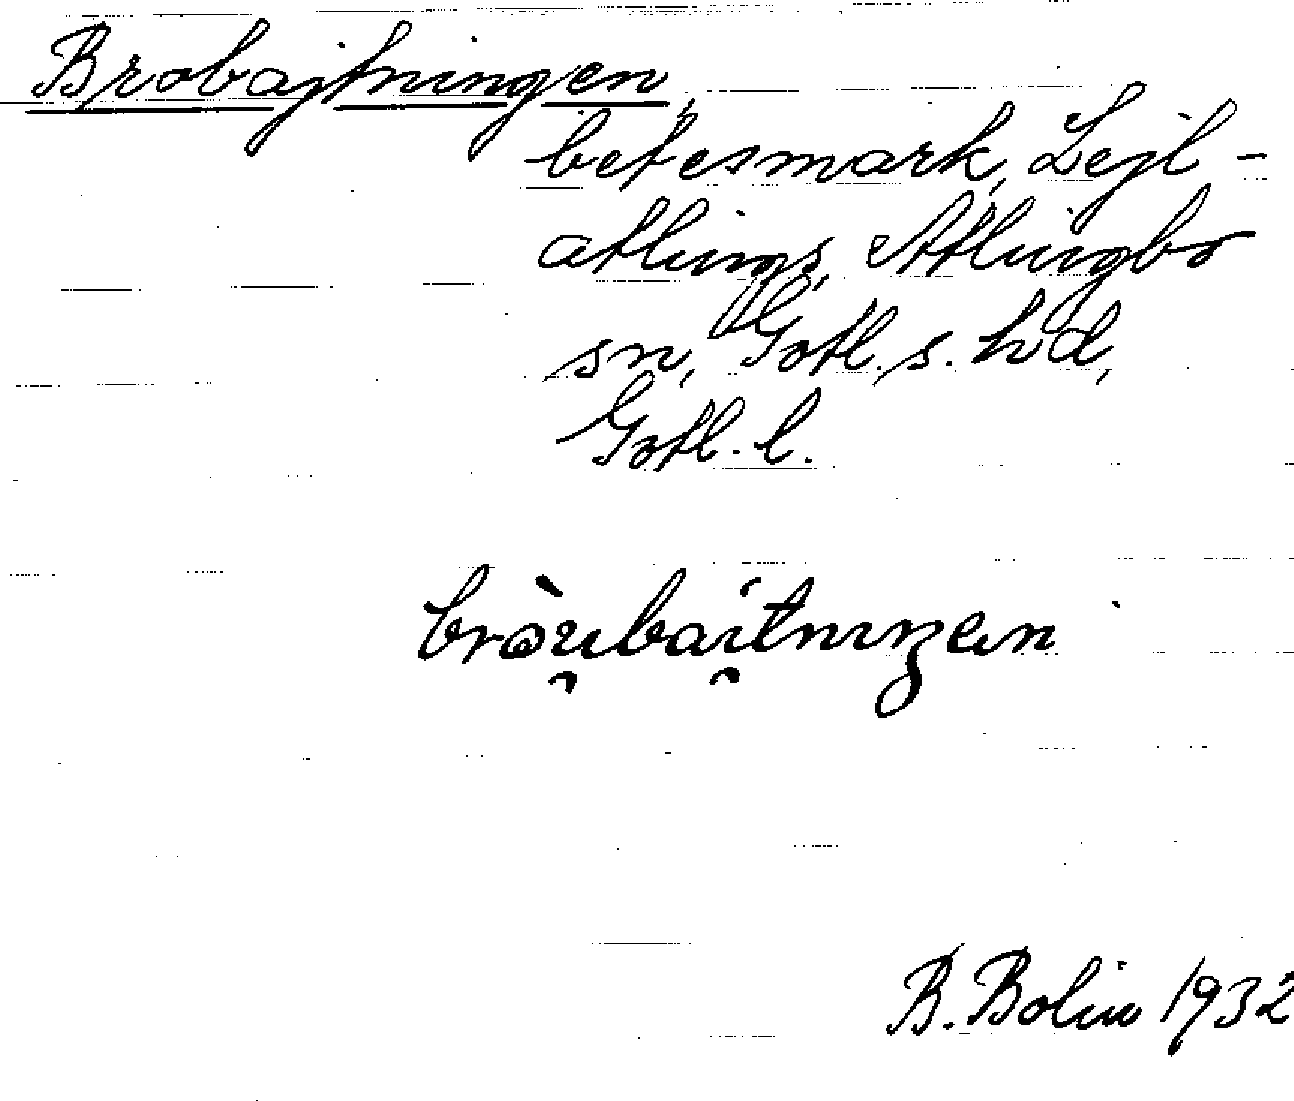 Brobajtningen,
betesmark, Lejl-
atlings, Atlingbo
sn, Gotl. s. hd,
Gotl. l.
B. Bolin 1932